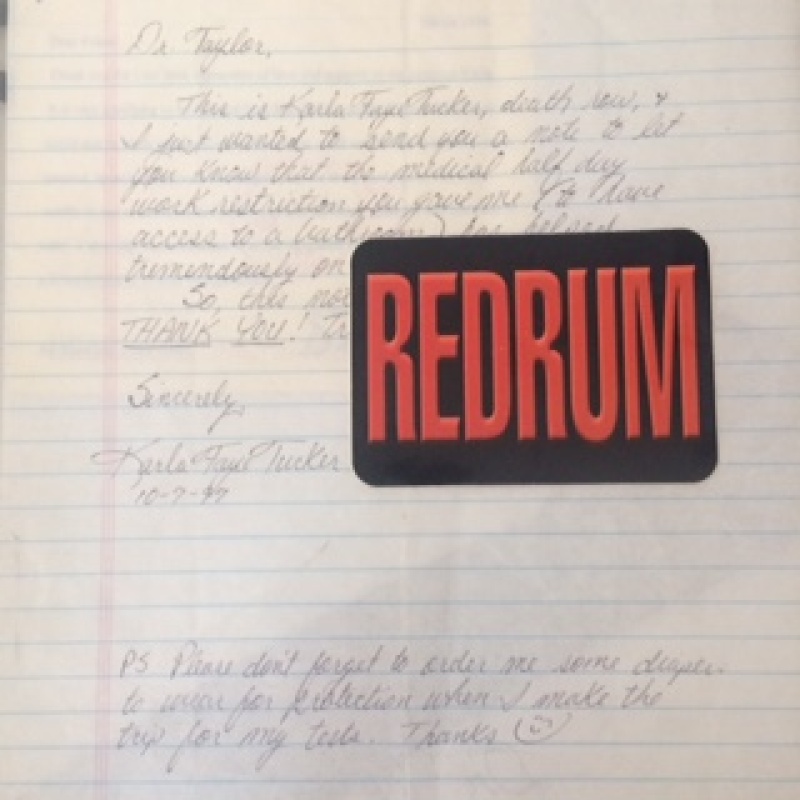 Dr. Taylor,
This is Karla Faye Tucker, death row, &
I just wanted to send you a note to let
you know that the medical half day
work restriction you gave me (to have
access to a bathroom) has helped
tremendously on
So, this not
THANK YOU!
REDRUM
Sincerely,
Karla Faye Tucker
10-7-97
PS Please don't forget to order me some diapers
to wear for protection when I make the
trip for my tests. Thanks ☺